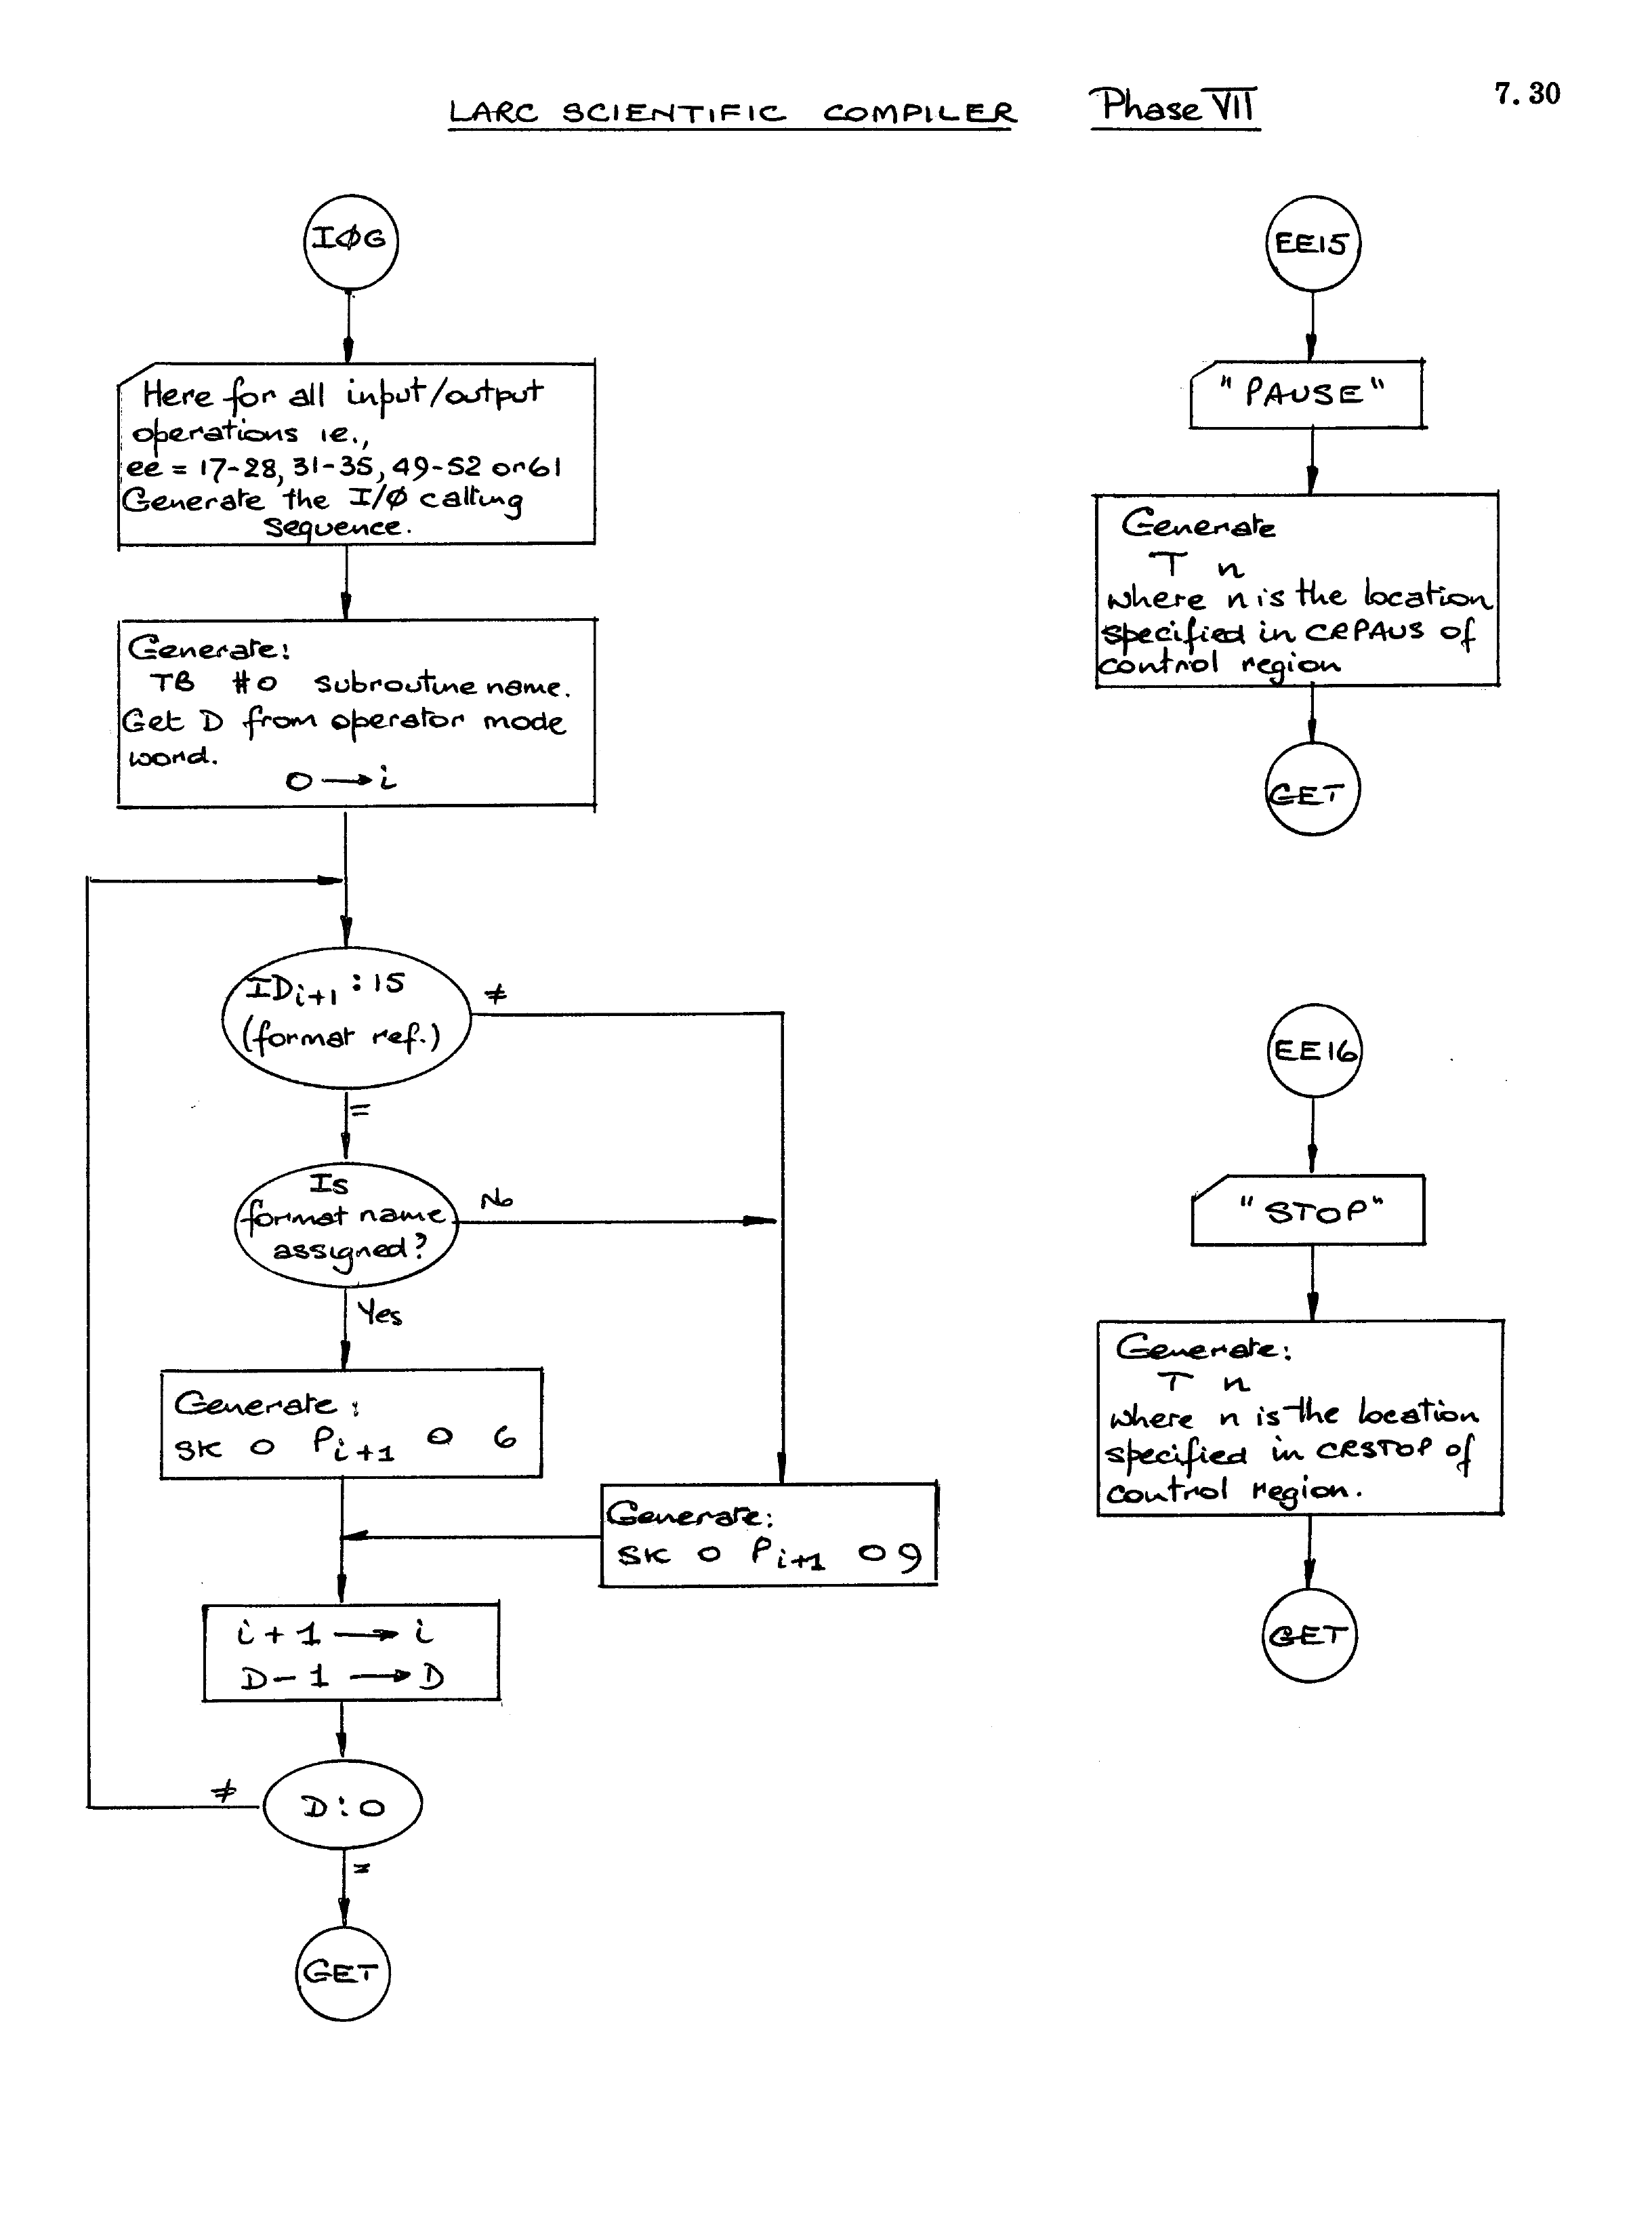 LARC SCIENTIFIC COMPILER Phase VII
7.30
IØG
Here for all input/output
operations ie.,
ee = 17-28, 31-35, 49-52 or 61
Generate the I/Ø calling
sequence.
Generate:
TB #0 subroutine name.
Get D from operator mode
word.
0 → i
IDi+1 : 15
(format ref.)
≠
=
Is
format name
assigned?
No
Yes
Generate:
SK 0 Pi+1 0 6
Generate:
SK 0 Pi+1 0 9
i + 1 → i
D - 1 → D
D : 0
≠
=
GET
EE15
"PAUSE"
Generate
T n
where n is the location
specified in CRPAUS of
control region
GET
EE16
"STOP"
Generate:
T n
where n is the location
specified in CRSTOP of
control region.
GET